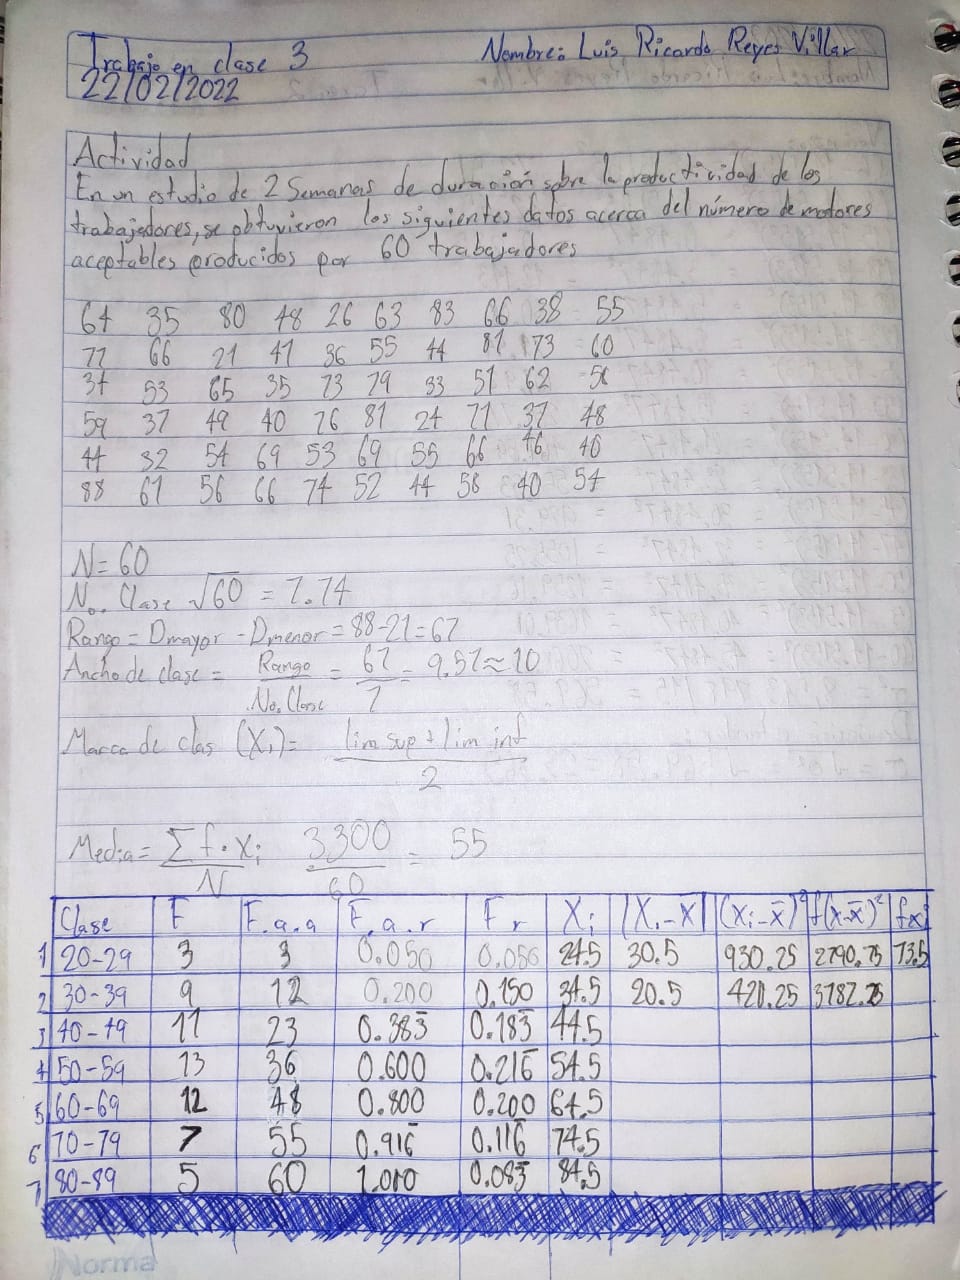 Trabajo en clase 3 Nombre: Luis Ricardo Reyes Villar
22/02/2022
Actividad
En un estudio de 2 Semanas de duración sobre la productividad de los
trabajadores, se obtuvieron los siguientes datos acerca del número de motores
aceptables producidos por 60 trabajadores
64 35 80 48 26 63 83 66 38 55
77 66 21 41 36 55 44 81 73 60
34 53 65 35 73 79 33 57 62
59 37 49 40 76 81 24 71 37 48
44 32 54 69 53 69 55 66 46 40
88 67 56 66 74 52 44 58 40 54
N=60
No. Clase √60 = 7.74
Rango = Dmayor - Dmenor = 88-21=67
Ancho de clase = Rango/No. Clase = 67/7 = 9.57≈10
Marca de clas (Xi)= lim sup + lim inf/2
Media= Σf·Xi/N 3300/60 = 55
Clase F F.a.a F.a.r Fr Xi |Xi-X̄| (Xi-x̄)² f(x-x̄)² fxi
1 20-29 3 3 0.050 0.050 24.5 30.5 930.25 2790.75 73.5
2 30-39 9 12 0.200 0.150 34.5 20.5 420.25 3782.25
3 40-49 11 23 0.383 0.183 44.5
4 50-59 13 36 0.600 0.216 54.5
5 60-69 12 48 0.800 0.200 64.5
6 70-79 7 55 0.916 0.116 74.5
7 80-89 5 60 1.000 0.083 84.5
Norma